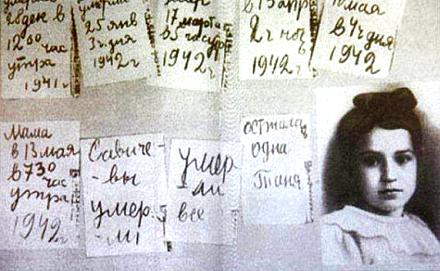 28 дек в
12 00 час
утра
1941 г
умерла
25 янв
3 ч дня
1942 г
17 марта
в 5 час утр
1942 г
в 13 апр
2 ч ноч
1942 г
мая
в 4 ч дня
1942 г
Мама
в 13 мая
в 7 30
час
утра
1942 г
Савиче-
-вы
умер-
-лі
умер
-ли
все
осталас
одна
Таня